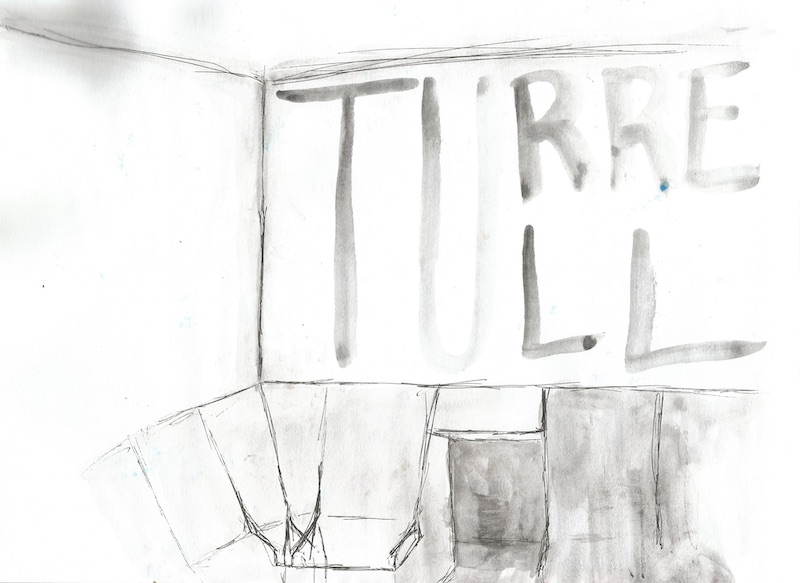 TURRE
LL